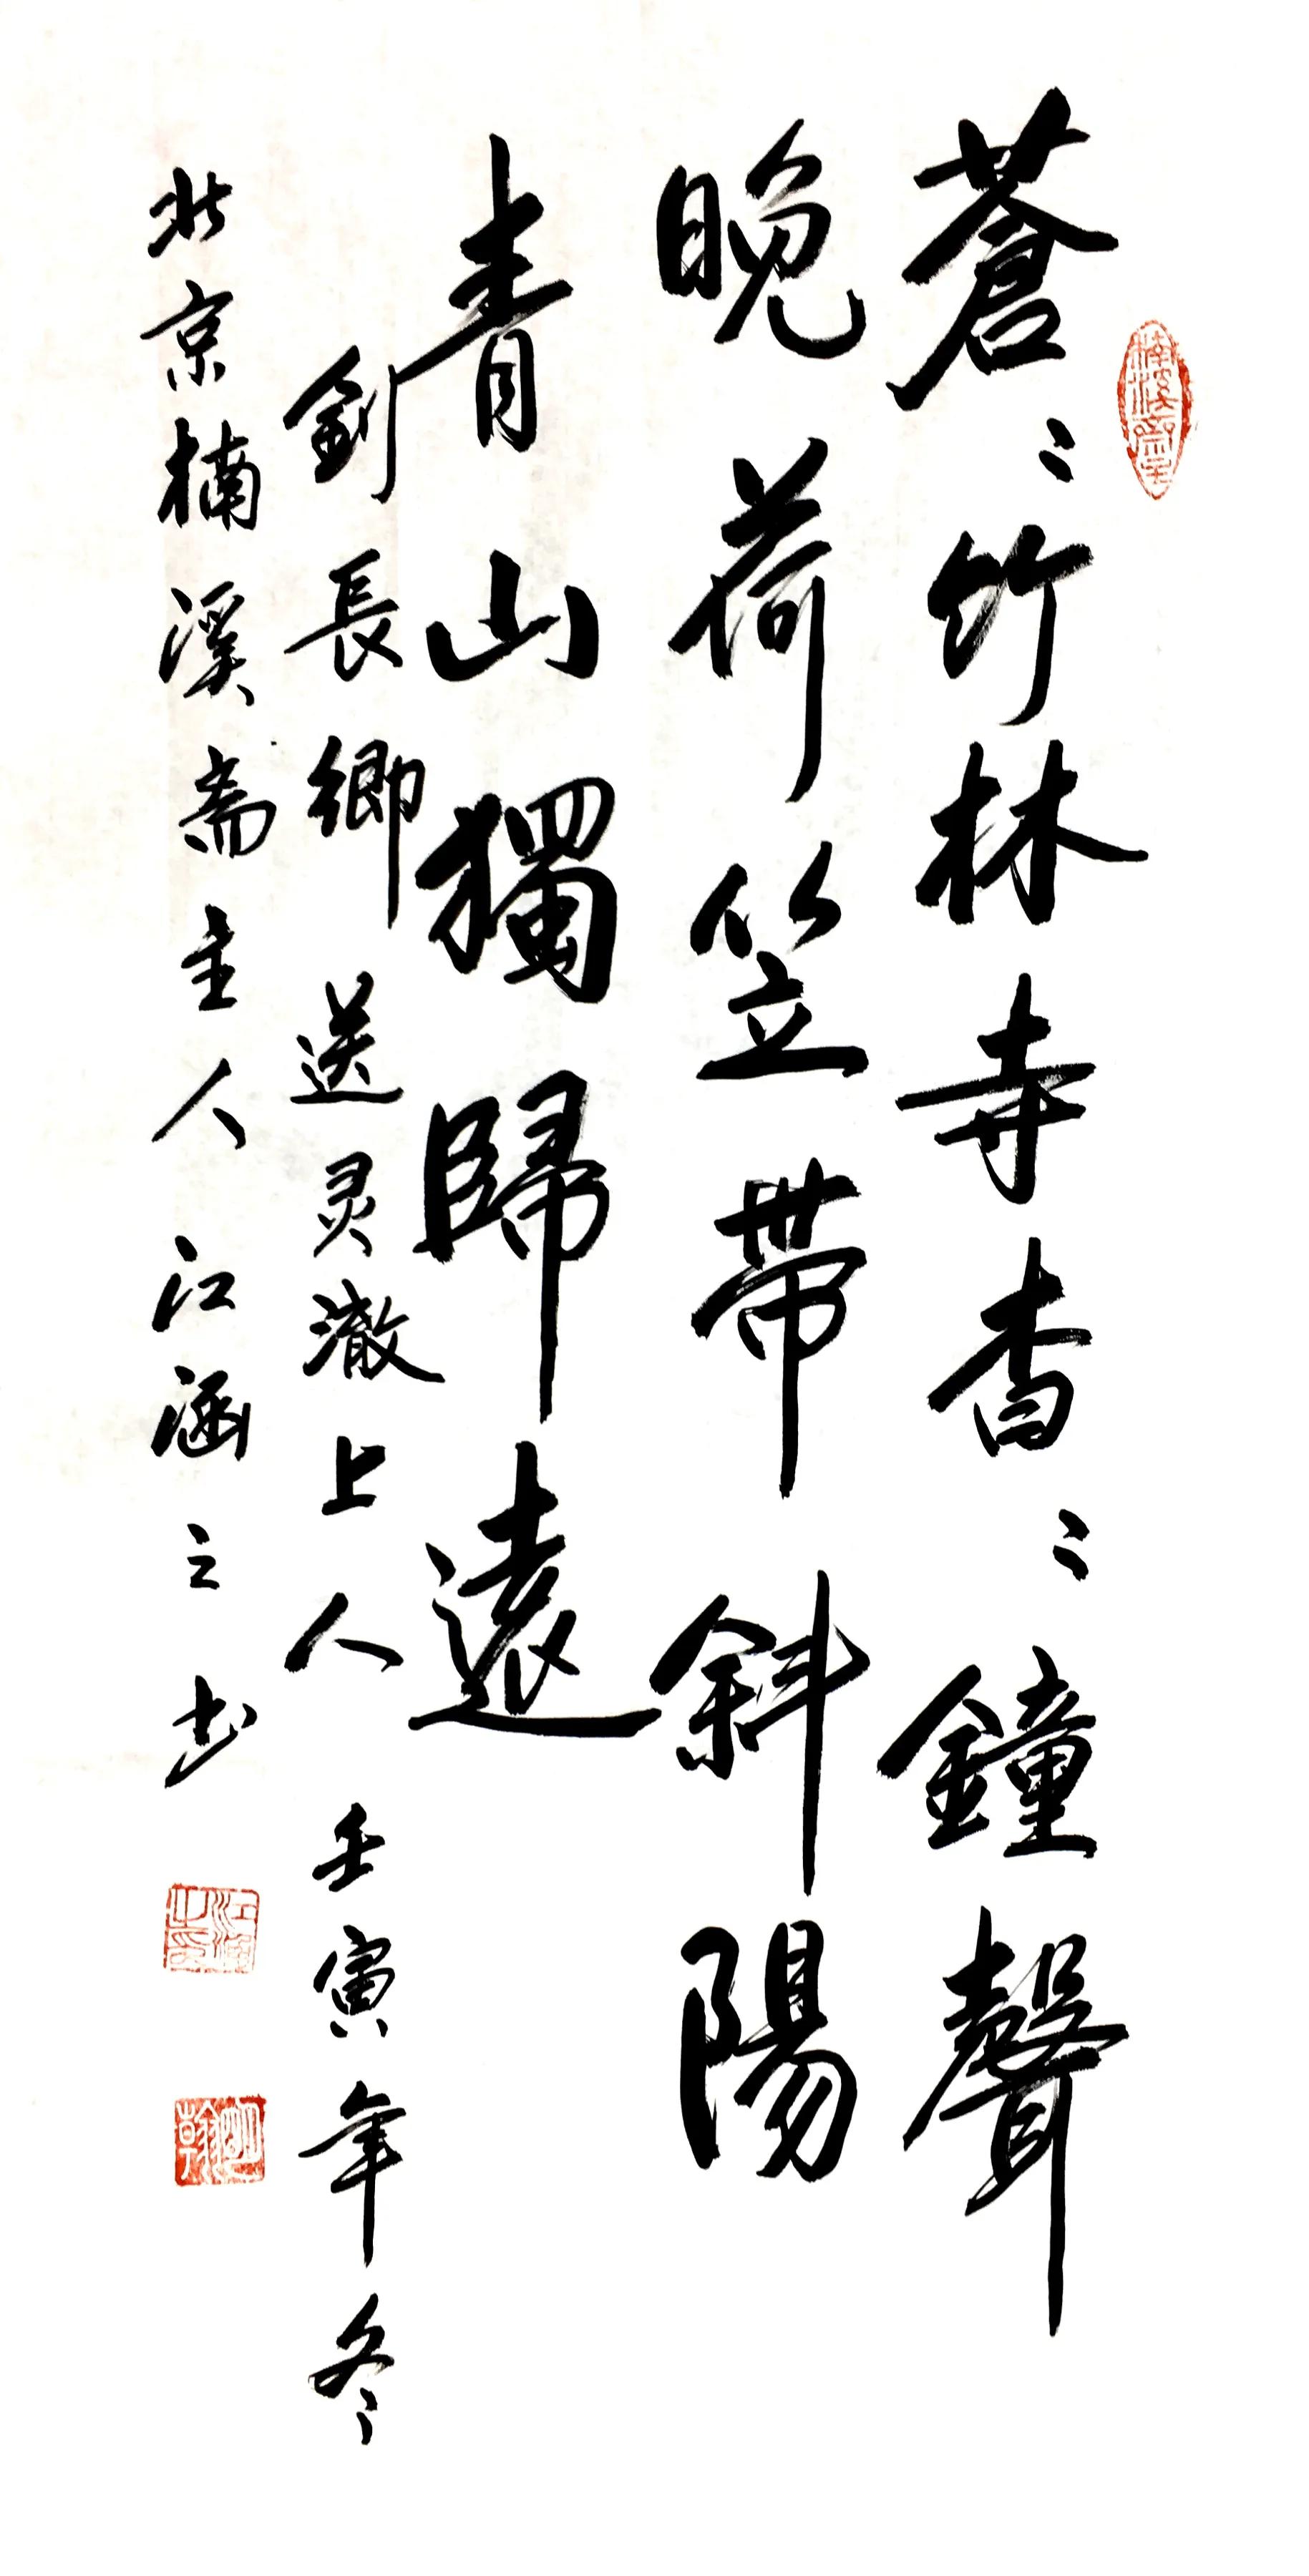 蒼〻竹林寺杳〻鐘聲
晚荷笠帶斜陽
青山獨歸遠
劉長卿送灵澈上人壬寅年冬
北京楠溪斋主人江涵之书
楠溪斋主
江涵之印